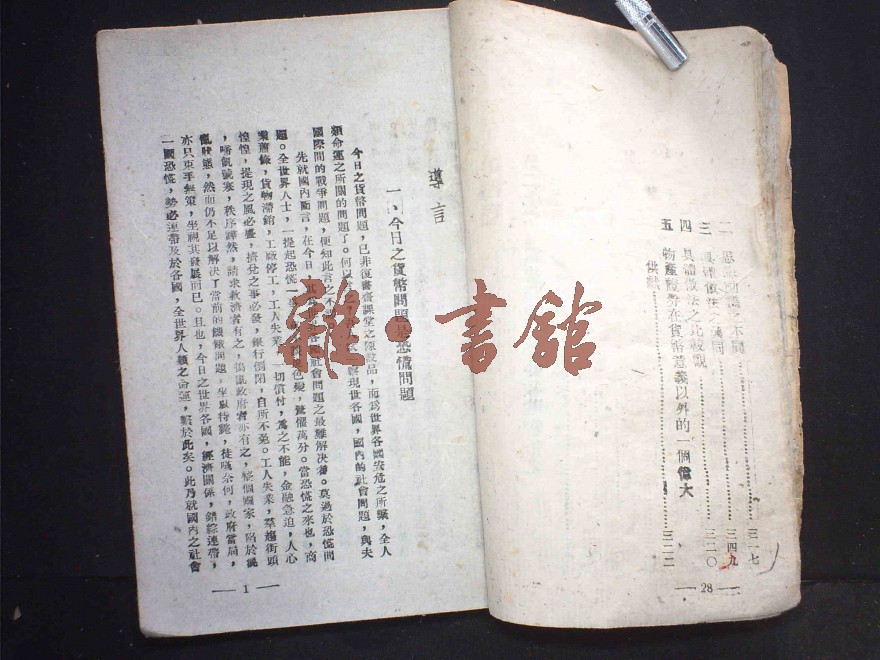 二 思想動機之不同……三一七
三 具體做法之異同……三四九
四 具體做法之比較觀……三二〇
五 物產證券在貨幣意義以外的一個偉大
供獻……三二二
— 28 —
導言
一、今日之貨幣問題是恐慌問題
今日之貨幣問題,已非復書齋課堂之陳設品,而爲世界各國安危之所繫,全人
類命運之所關的問題了。何以 現世各國,國內的社會問題,與夫
國際間的戰爭問題,便知此言之不
先就國內而言,在今日, 社會問題之最難解決者。莫過於恐慌問
題。全世界人士,一提起恐慌一事, 色變,驚懼萬分。當恐慌之來也,商
業蕭條,貨物滯銷,工廠停工,工人失業, 一切償付,爲之不能,金融急迫,人心
惶惶,提現之風必盛,擠兌之事必發,銀行倒閉,自所不免。工人失業,羣趨街頭
,啼飢號寒,秩序譁然,請求救濟者有之,搗亂政府者亦有之,整個國家,陷於混
亂狀態,然而仍不足以解決了當前的饑餓問題,坐獄待斃,徒嘆奈何,政府當局,
亦只束手無策,坐視其發展而已。且也,今日之世界各國,經濟關係,錯綜連帶,
一國恐慌,勢必連帶及於各國,全世界人類之命運,繫於此矣。此乃就國內之社會
— 1 —
雜·書館